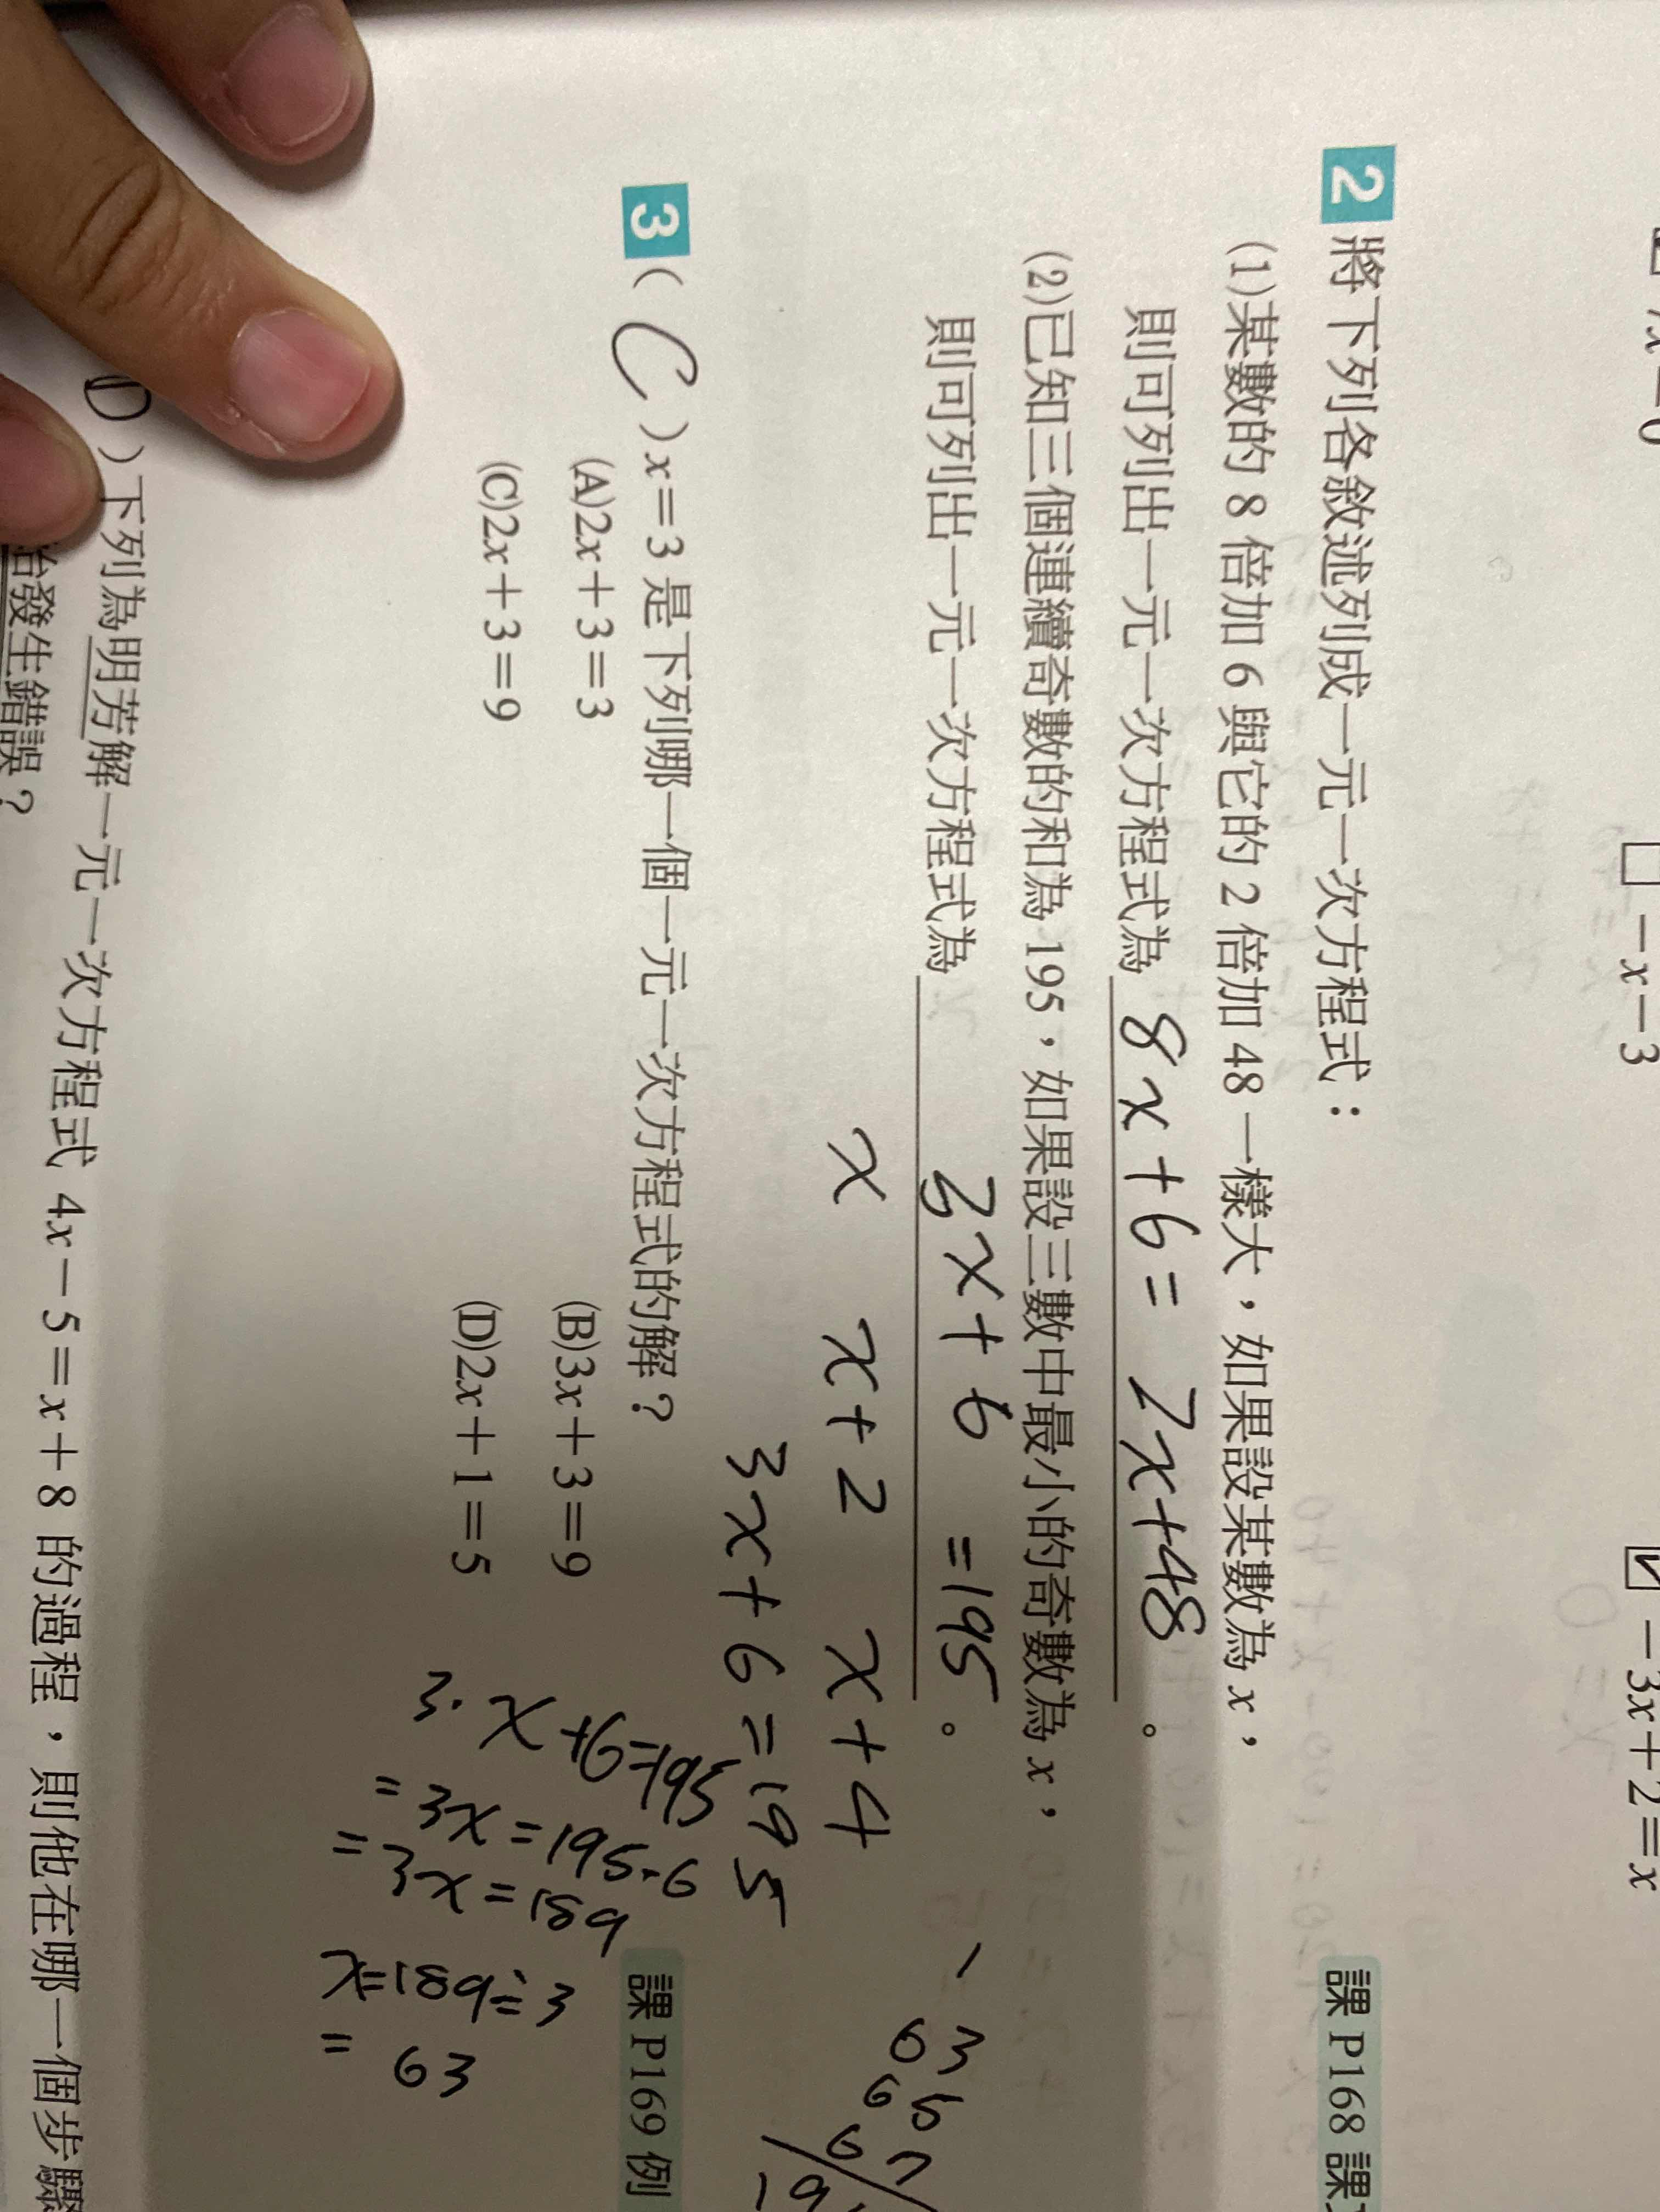 −x−3
−3x+2=x
2 將下列各敘述列成一元一次方程式：
課 P168 課
(1)某數的 8 倍加 6 與它的 2 倍加 48 一樣大，如果設某數為 x，
則可列出一元一次方程式為 8x+6=2x+48。
(2)已知三個連續奇數的和為 195，如果設三數中最小的奇數為 x，
則可列出一元一次方程式為 3x+6=195。
x x+2 x+4
3x+6=195
63
65
67
3 ( C ) x=3 是下列哪一個一元一次方程式的解？
課 P169 例
(A)2x+3=3 (B)3x+3=9
(C)2x+3=9 (D)2x+1=5
3·x+6=195
=3x=195-6
=3x=189
x=189÷3
=63
D ) 下列為明芳解一元一次方程式 4x−5=x+8 的過程，則他在哪一個步驟
發生錯誤？